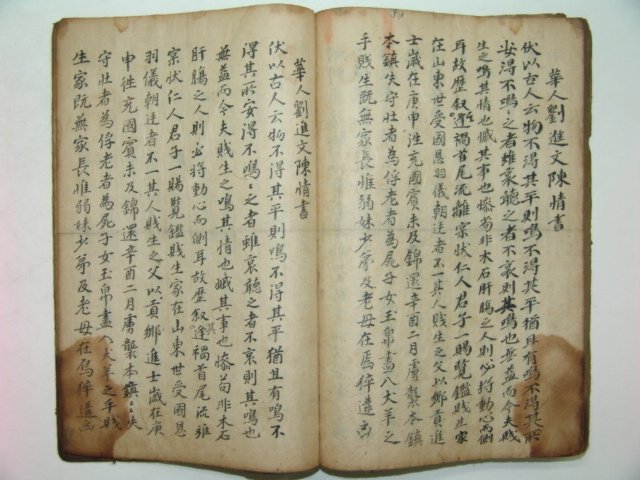 華人劉進文陳情書
伏以古人云物不得其平則鳴不得其平猶且有鳴不得其所
安得不鳴鳴之者雖哀聽之者不哀則其鳴也無益而今夫賤
生之鳴其情也慽其事也慘苟非木石肝腸之人則必將動心而側
耳故歷叙逢禍首尾流離宗狀仁人君子一賜覽鑑賤生家
在山東世受國恩羽儀朝廷者不一其人賤生之父以鄉貢進
士歲在庚申徃充國賓未及錦還辛酉二月虜襲本鎮
本鎮失守壯者為俘老者為屍子女玉帛盡入犬羊之
手賤生既無家長惟弱妹少弟及老母在焉猝遭
華人劉進文陳情書
伏以古人云物不得其平則鳴不得其平猶且有鳴不
得其所安得不鳴之者雖哀聽之者不哀則其鳴也
無益而今夫賤生之鳴其情也慽其事也慘苟非木石
肝腸之人則必將動心而側耳故歷叙逢禍首尾流離
宗狀仁人君子一賜覽鑑賤生家在山東世受國恩
羽儀朝廷者不一其人賤生之父以貢鄉進士歲在庚
申徃充國賓未及錦還辛酉二月虜襲本鎮失
守壯者為俘老者為屍子女玉帛盡入犬羊之手賤
生家既無家長惟弱妹少弟及老母在焉猝遭